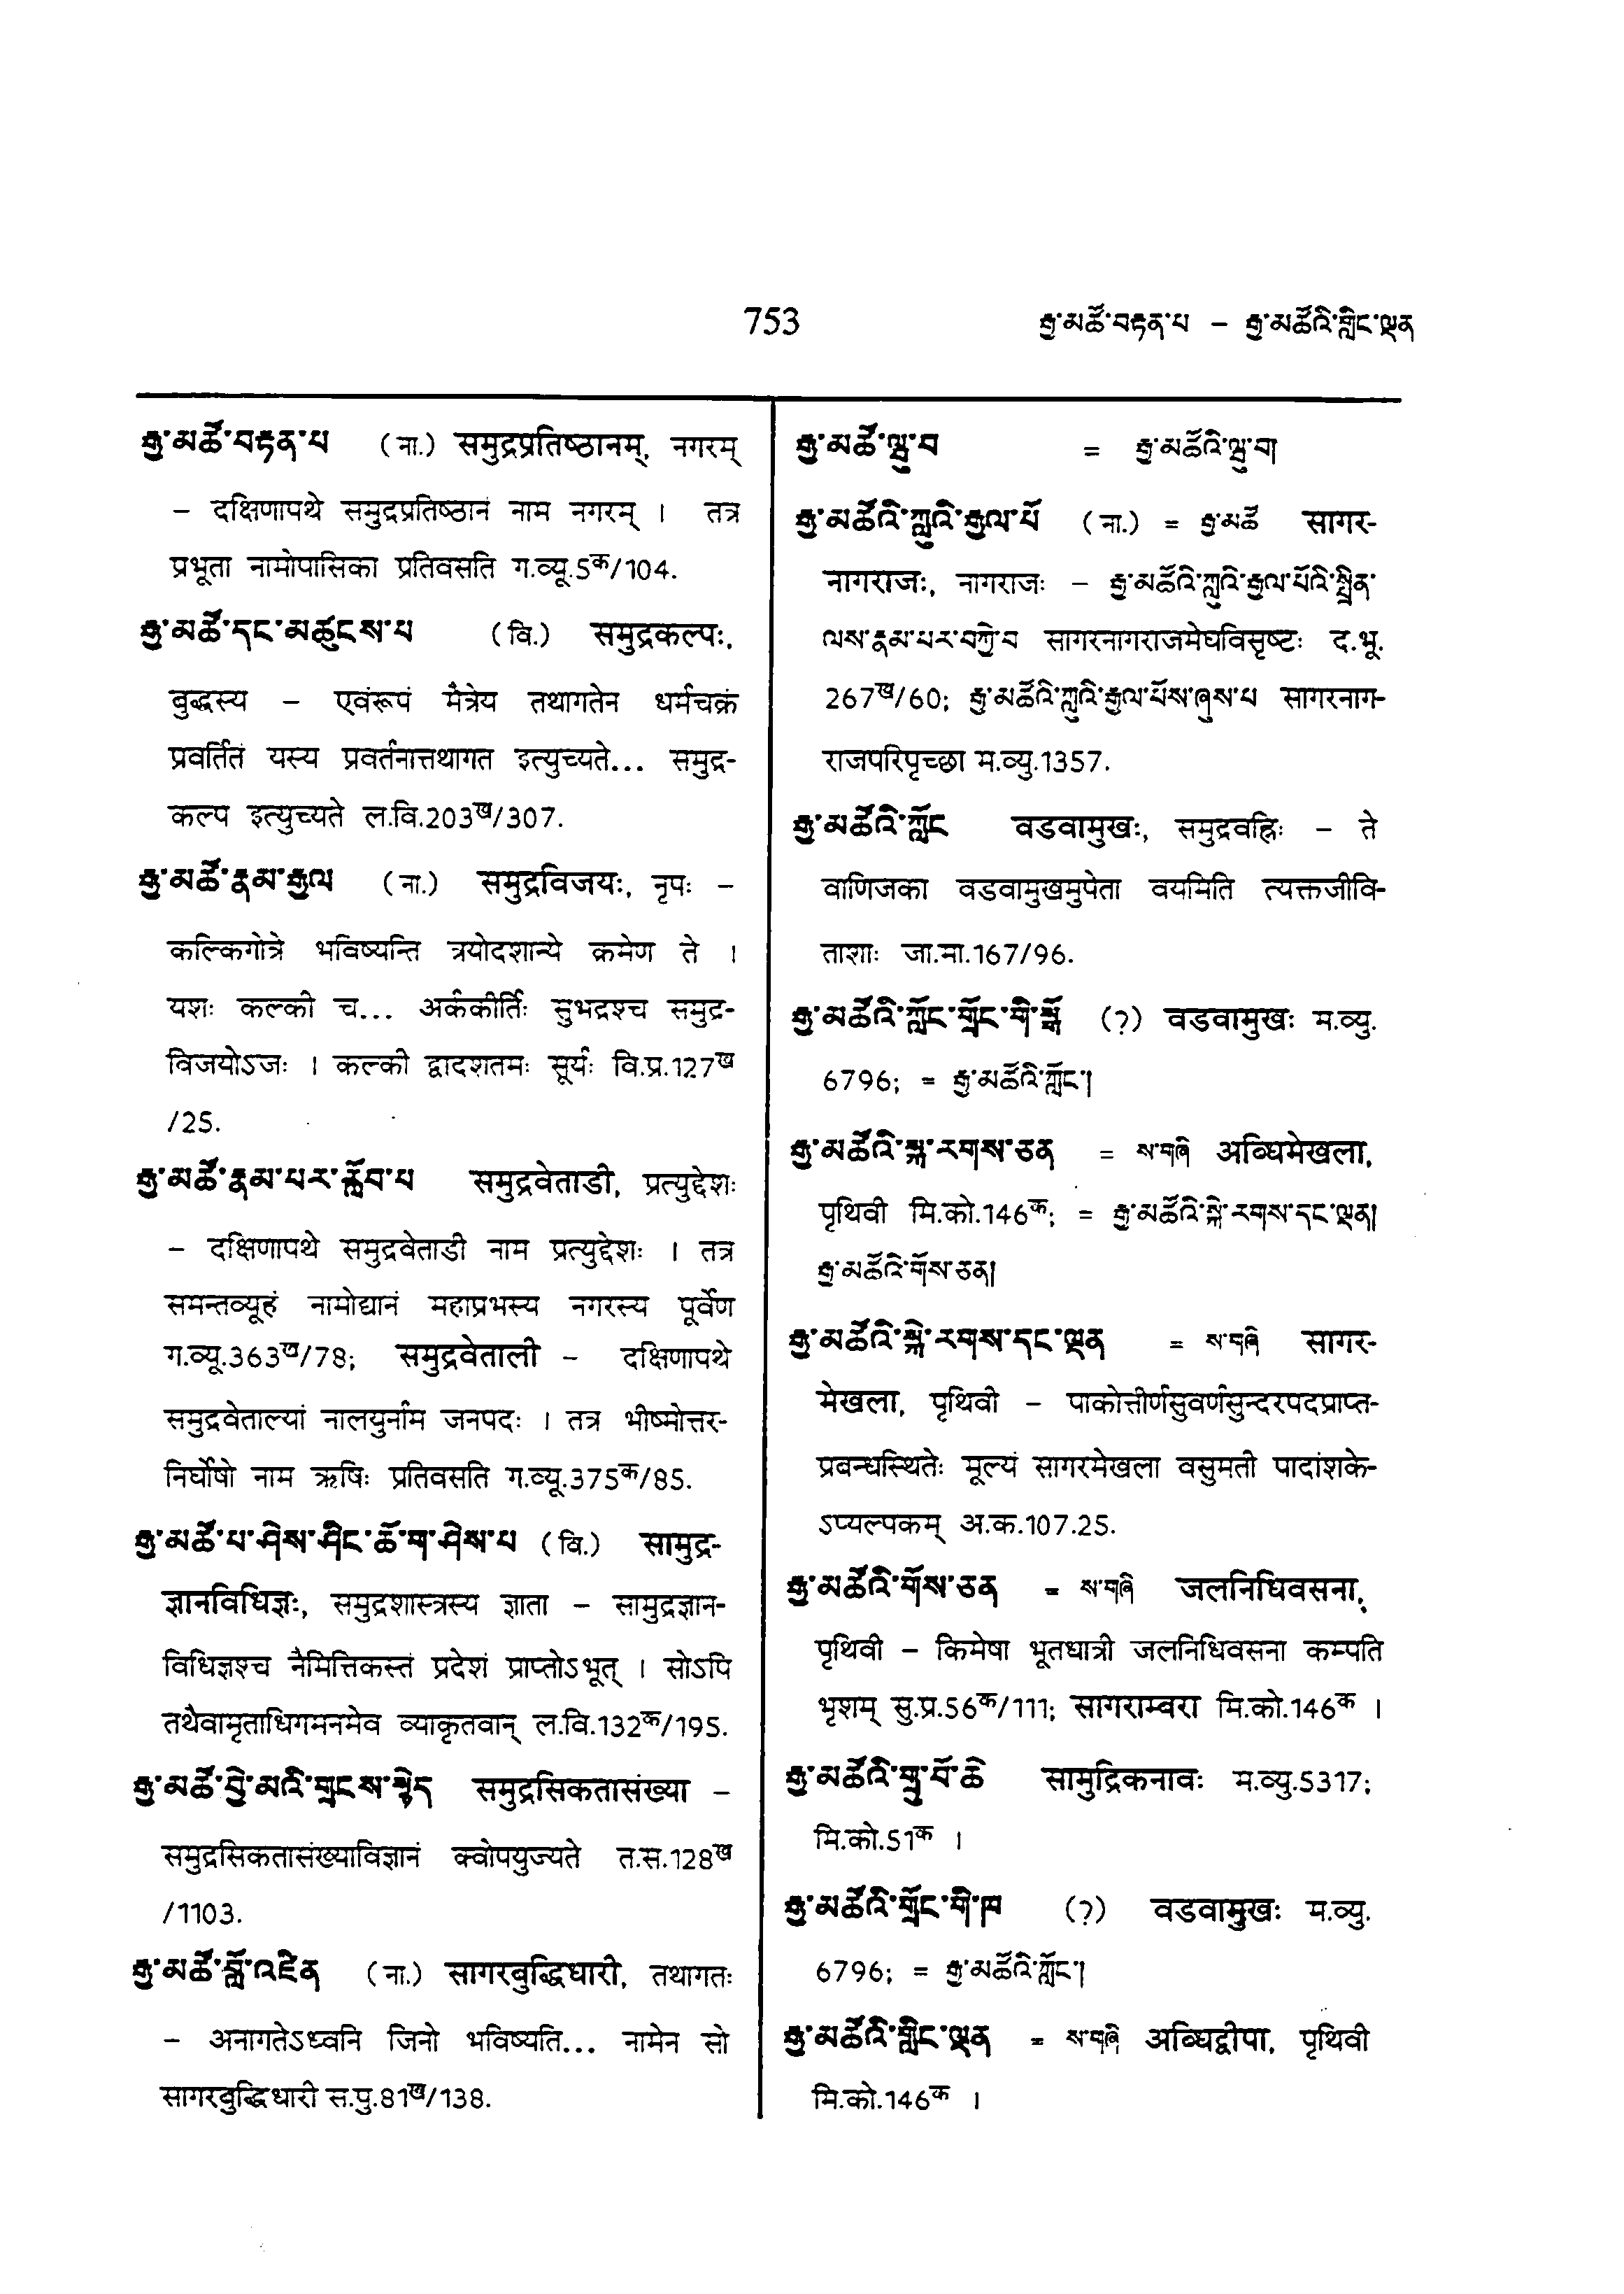 753
རྒྱ་མཚོ་བརྟན་པ – རྒྱ་མཚོའི་གླིང་ལྡན
རྒྱ་མཚོ་བརྟན་པ (ना.) समुद्रप्रतिष्ठानम्, नगरम्
– दक्षिणापथे समुद्रप्रतिष्ठानं नाम नगरम् । तत्र
प्रभूता नामोपासिका प्रतिवसति ग.व्यू.5क/104.
རྒྱ་མཚོ་དང་མཚུངས་པ (वि.) समुद्रकल्पः,
बुद्धस्य – एवंरूपं मैत्रेय तथागतेन धर्मचक्रं
प्रवर्तितं यस्य प्रवर्तनात्तथागत इत्युच्यते... समुद्र-
कल्प इत्युच्यते ल.वि.203ख/307.
རྒྱ་མཚོ་རྣམ་རྒྱལ (ना.) समुद्रविजयः, नृपः –
कल्किगोत्रे भविष्यन्ति त्रयोदशान्ये क्रमेण ते ।
यशः कल्की च... अर्ककीर्तिः सुभद्रश्च समुद्र-
विजयोऽजः । कल्की द्वादशतमः सूर्यः वि.प्र.127ख
/25.
རྒྱ་མཚོ་རྣམ་པར་རློབ་པ समुद्रवेताडी, प्रत्युद्देशः
– दक्षिणापथे समुद्रवेताडी नाम प्रत्युद्देशः । तत्र
समन्तव्यूहं नामोद्यानं महाप्रभस्य नगरस्य पूर्वेण
ग.व्यू.363ख/78; समुद्रवेताली – दक्षिणापथे
समुद्रवेताल्यां नालयुर्नाम जनपदः । तत्र भीष्मोत्तर-
निर्घोषो नाम ऋषिः प्रतिवसति ग.व्यू.375क/85.
རྒྱ་མཚོ་པ་ཤེས་ཤིང་ཆོ་ག་ཤེས་པ (वि.) सामुद्र-
ज्ञानविधिज्ञः, समुद्रशास्त्रस्य ज्ञाता – सामुद्रज्ञान-
विधिज्ञश्च नैमित्तिकस्तं प्रदेशं प्राप्तोऽभूत् । सोऽपि
तथैवामृताधिगमनमेव व्याकृतवान् ल.वि.132क/195.
རྒྱ་མཚོ་བྱེ་མའི་གྲངས་ཉིད समुद्रसिकतासंख्या –
समुद्रसिकतासंख्याविज्ञानं क्वोपयुज्यते त.स.128ख
/1103.
རྒྱ་མཚོ་བློ་འཛིན (ना.) सागरबुद्धिधारी, तथागतः
– अनागतेऽध्वनि जिनो भविष्यति... नामेन सो
सागरबुद्धिधारी स.पु.81ख/138.
རྒྱ་མཚོ་ལྦུ་བ = རྒྱ་མཚོའི་ལྦུ་བ།
རྒྱ་མཚོའི་ཀླུའི་རྒྱལ་པོ (ना.) = རྒྱ་མཚོ सागर-
नागराजः, नागराजः – རྒྱ་མཚོའི་ཀླུའི་རྒྱལ་པོའི་སྤྲིན་
ལས་རྣམ་པར་བཀྱེ་བ सागरनागराजमेघविसृष्टः द.भू.
267ख/60; རྒྱ་མཚོའི་ཀླུའི་རྒྱལ་པོས་ཞུས་པ सागरनाग-
राजपरिपृच्छा म.व्यु.1357.
རྒྱ་མཚོའི་ཀློང वडवामुखः, समुद्रवह्निः – ते
वाणिजका वडवामुखमुपेता वयमिति त्यक्तजीवि-
ताशाः जा.मा.167/96.
རྒྱ་མཚོའི་ཀློང་གྲོང་གི་སྒོ (?) वडवामुखः म.व्यु.
6796; = རྒྱ་མཚོའི་ཀློང་།
རྒྱ་མཚོའི་སྐ་རགས་ཅན = ས་གཞི अब्धिमेखला,
पृथिवी मि.को.146क; = རྒྱ་མཚོའི་སྐེ་རགས་དང་ལྡན།
རྒྱ་མཚོའི་གོས་ཅན།
རྒྱ་མཚོའི་སྐེ་རགས་དང་ལྡན = ས་གཞི सागर-
मेखला, पृथिवी – पाकोत्तीर्णसुवर्णसुन्दरपदप्राप्त-
प्रबन्धस्थितेः मूल्यं सागरमेखला वसुमती पादांशके-
ऽप्यल्पकम् अ.क.107.25.
རྒྱ་མཚོའི་གོས་ཅན = ས་གཞི जलनिधिवसना,
पृथिवी – किमेषा भूतधात्री जलनिधिवसना कम्पति
भृशम् सु.प्र.56क/111; सागराम्बरा मि.को.146क ।
རྒྱ་མཚོའི་གྲུ་བོ་ཆེ सामुद्रिकनावः म.व्यु.5317;
मि.को.51क ।
རྒྱ་མཚོའི་གྲོང་གི་ཁ (?) वडवामुखः म.व्यु.
6796; = རྒྱ་མཚོའི་ཀློང་།
རྒྱ་མཚོའི་གླིང་ལྡན = ས་གཞི अब्धिद्वीपा, पृथिवी
मि.को.146क ।